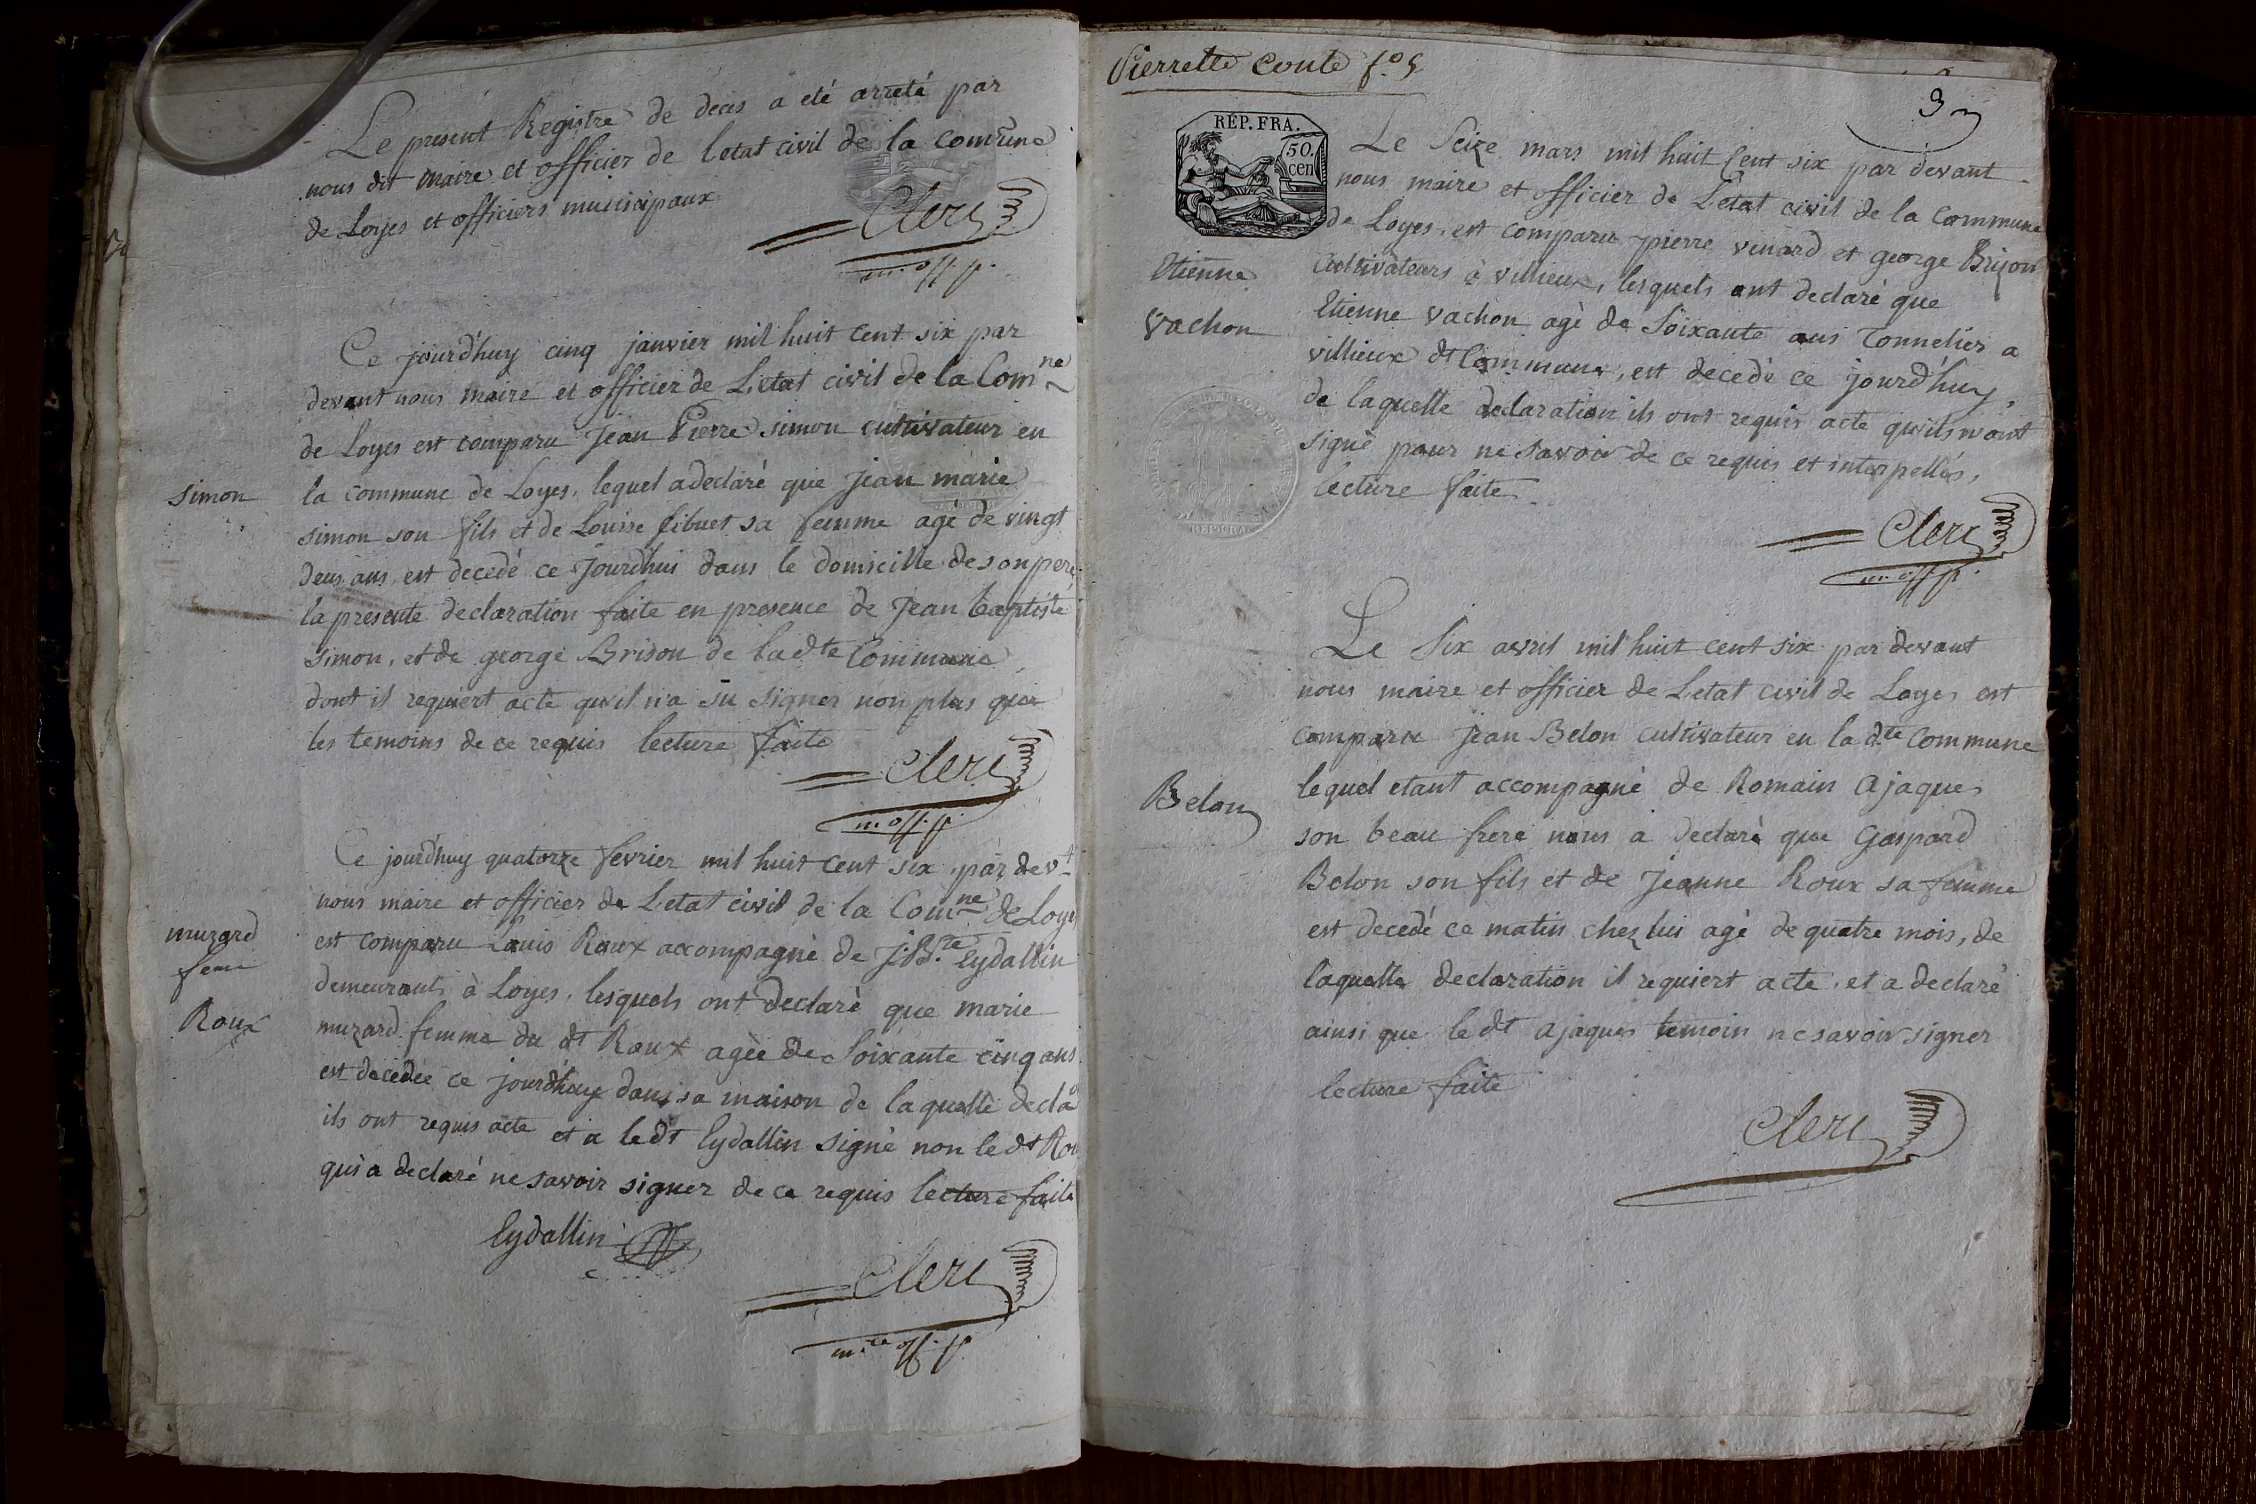 Le present Registre de deces a eté arreté par
nous dit maire et officier de letat civil de la comune
de Loyes et officiers municipaux
Clerc
m. off. p.
Ce jourd'huy cinq janvier mil huit cent six par
devant nous maire et officier de L'etat civil de la Com^ne
de Loyes est comparu Jean Pierre simon cultivateur en
simon
la commune de Loyes, lequel a declaré que jean marie
simon son fils et de Louise fibuet sa femme agé de vingt
deux ans, est decedé ce jourdhui dans le domicille de son pere
la presente declaration faite en presence de Jean baptiste
simon, et de george Brison de lad^te Commune,
dont il requiert acte qu'il n'a su signer non plus que
les temoins de ce requis lecture faite
Clerc
m. off. p.
Ce jourd'huy quatorze fevrier mil huit cent six, par dev^t
nous maire et officier de L'etat civil de la Com^ne de Loyes
muzard
feme
Roux
est comparu Louis Roux accompagné de J. B.^te Eydallin
demeurants à Loyes, lesquels ont declaré que marie
muzard femme du dt Roux agée de Soixante cinq ans
est decedée ce jourd'huy dans sa maison de laquelle decla^on
ils ont requis acte et a ledt Eydallin signé non le dt Rou
qui a declaré ne savoir signer de ce requis lecture faite
Eydallin
Clerc
m.^re off. p.
Pierrette Conte f.° 5
3
RÉP. FRA.
50.
cen
Le Seize mars mil huit Cent six par devant
nous maire et officier de L'etat civil de la Commune
de Loyes, est comparu pierre vinard et george Brizon
Etienne
Vachon
cultivateurs à villieux, lesquels ont declaré que
Etienne vachon agé de Soixante ans Tonnelier a
villieux dt Commune, est decedé ce jourd'huy,
de laquelle declaration ils ont requis acte qu'ils n'ont
signé pour ne savoir de ce requis et interpellés,
lecture faite
Clerc
m. off. p.
Le Six avril mil huit cent six par devant
nous maire et officier de L'etat civil de Loyes est
comparu Jean Belon cultivateur en la d^te Commune
Belon
lequel etant accompagné de Romain ajaques
son beau frere nous a declaré que Gaspard
Belon son fils et de Jeanne Roux sa femme
est decedé ce matin chez lui agé de quatre mois, de
laquelle declaration il requiert acte, et a declaré
ainsi que le dt ajaques temoin ne savoir signer
lecture faite
Clerc